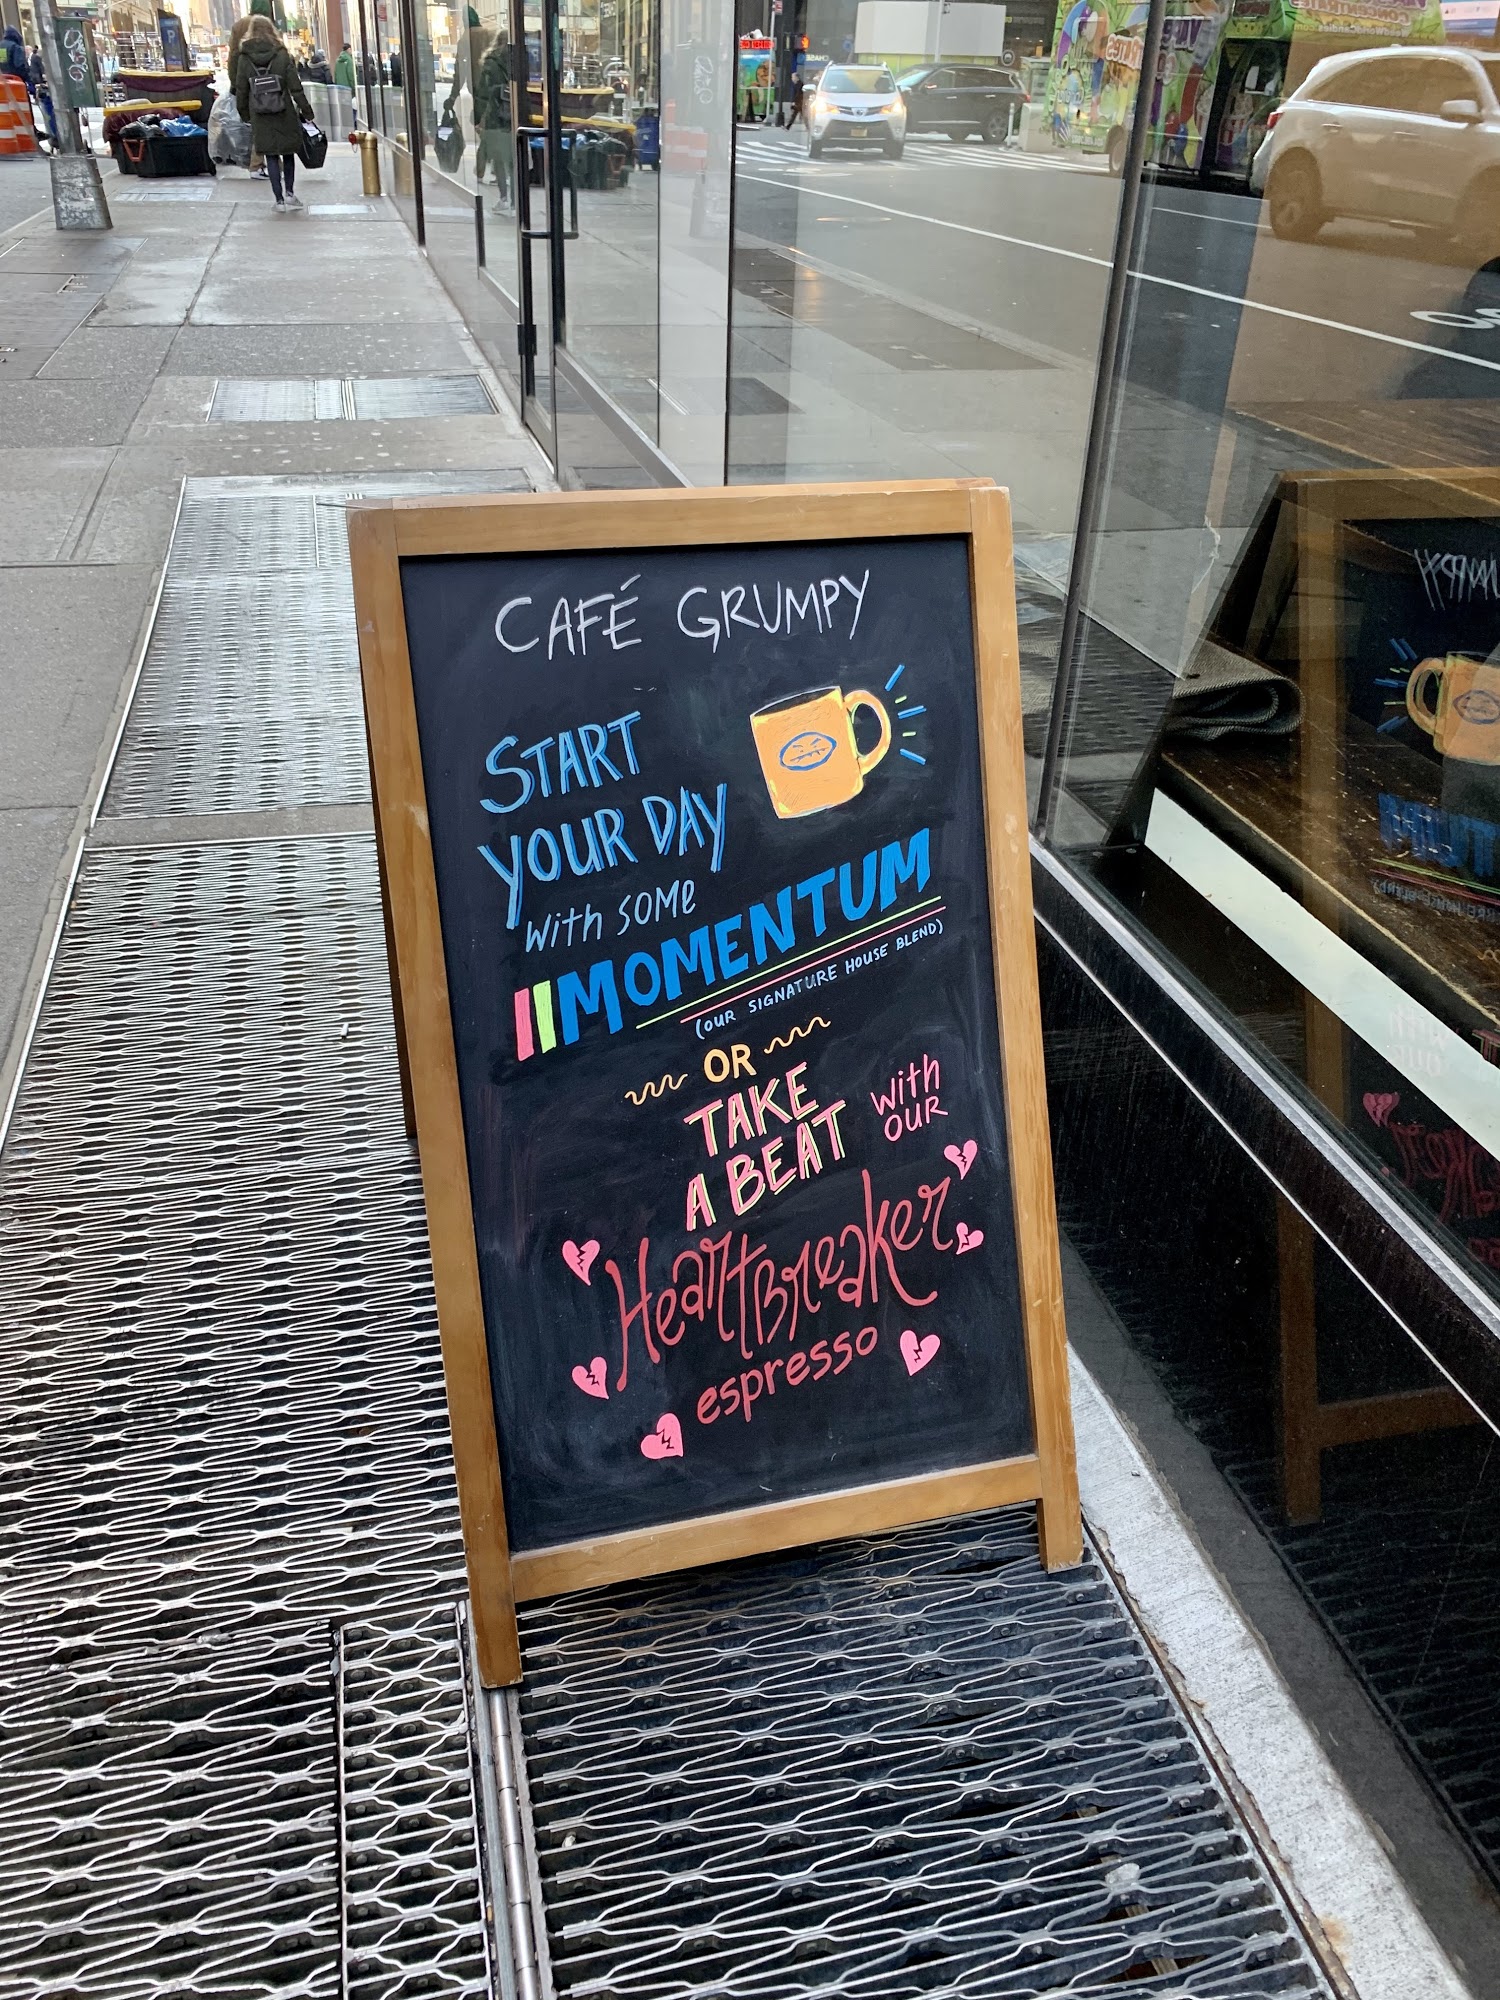 CAFÉ GRUMPY
START
YOUR DAY
with SOME
MOMENTUM
(OUR SIGNATURE HOUSE BLEND)
OR
TAKE
A BEAT
with
OUR
HeartBreaker
espresso